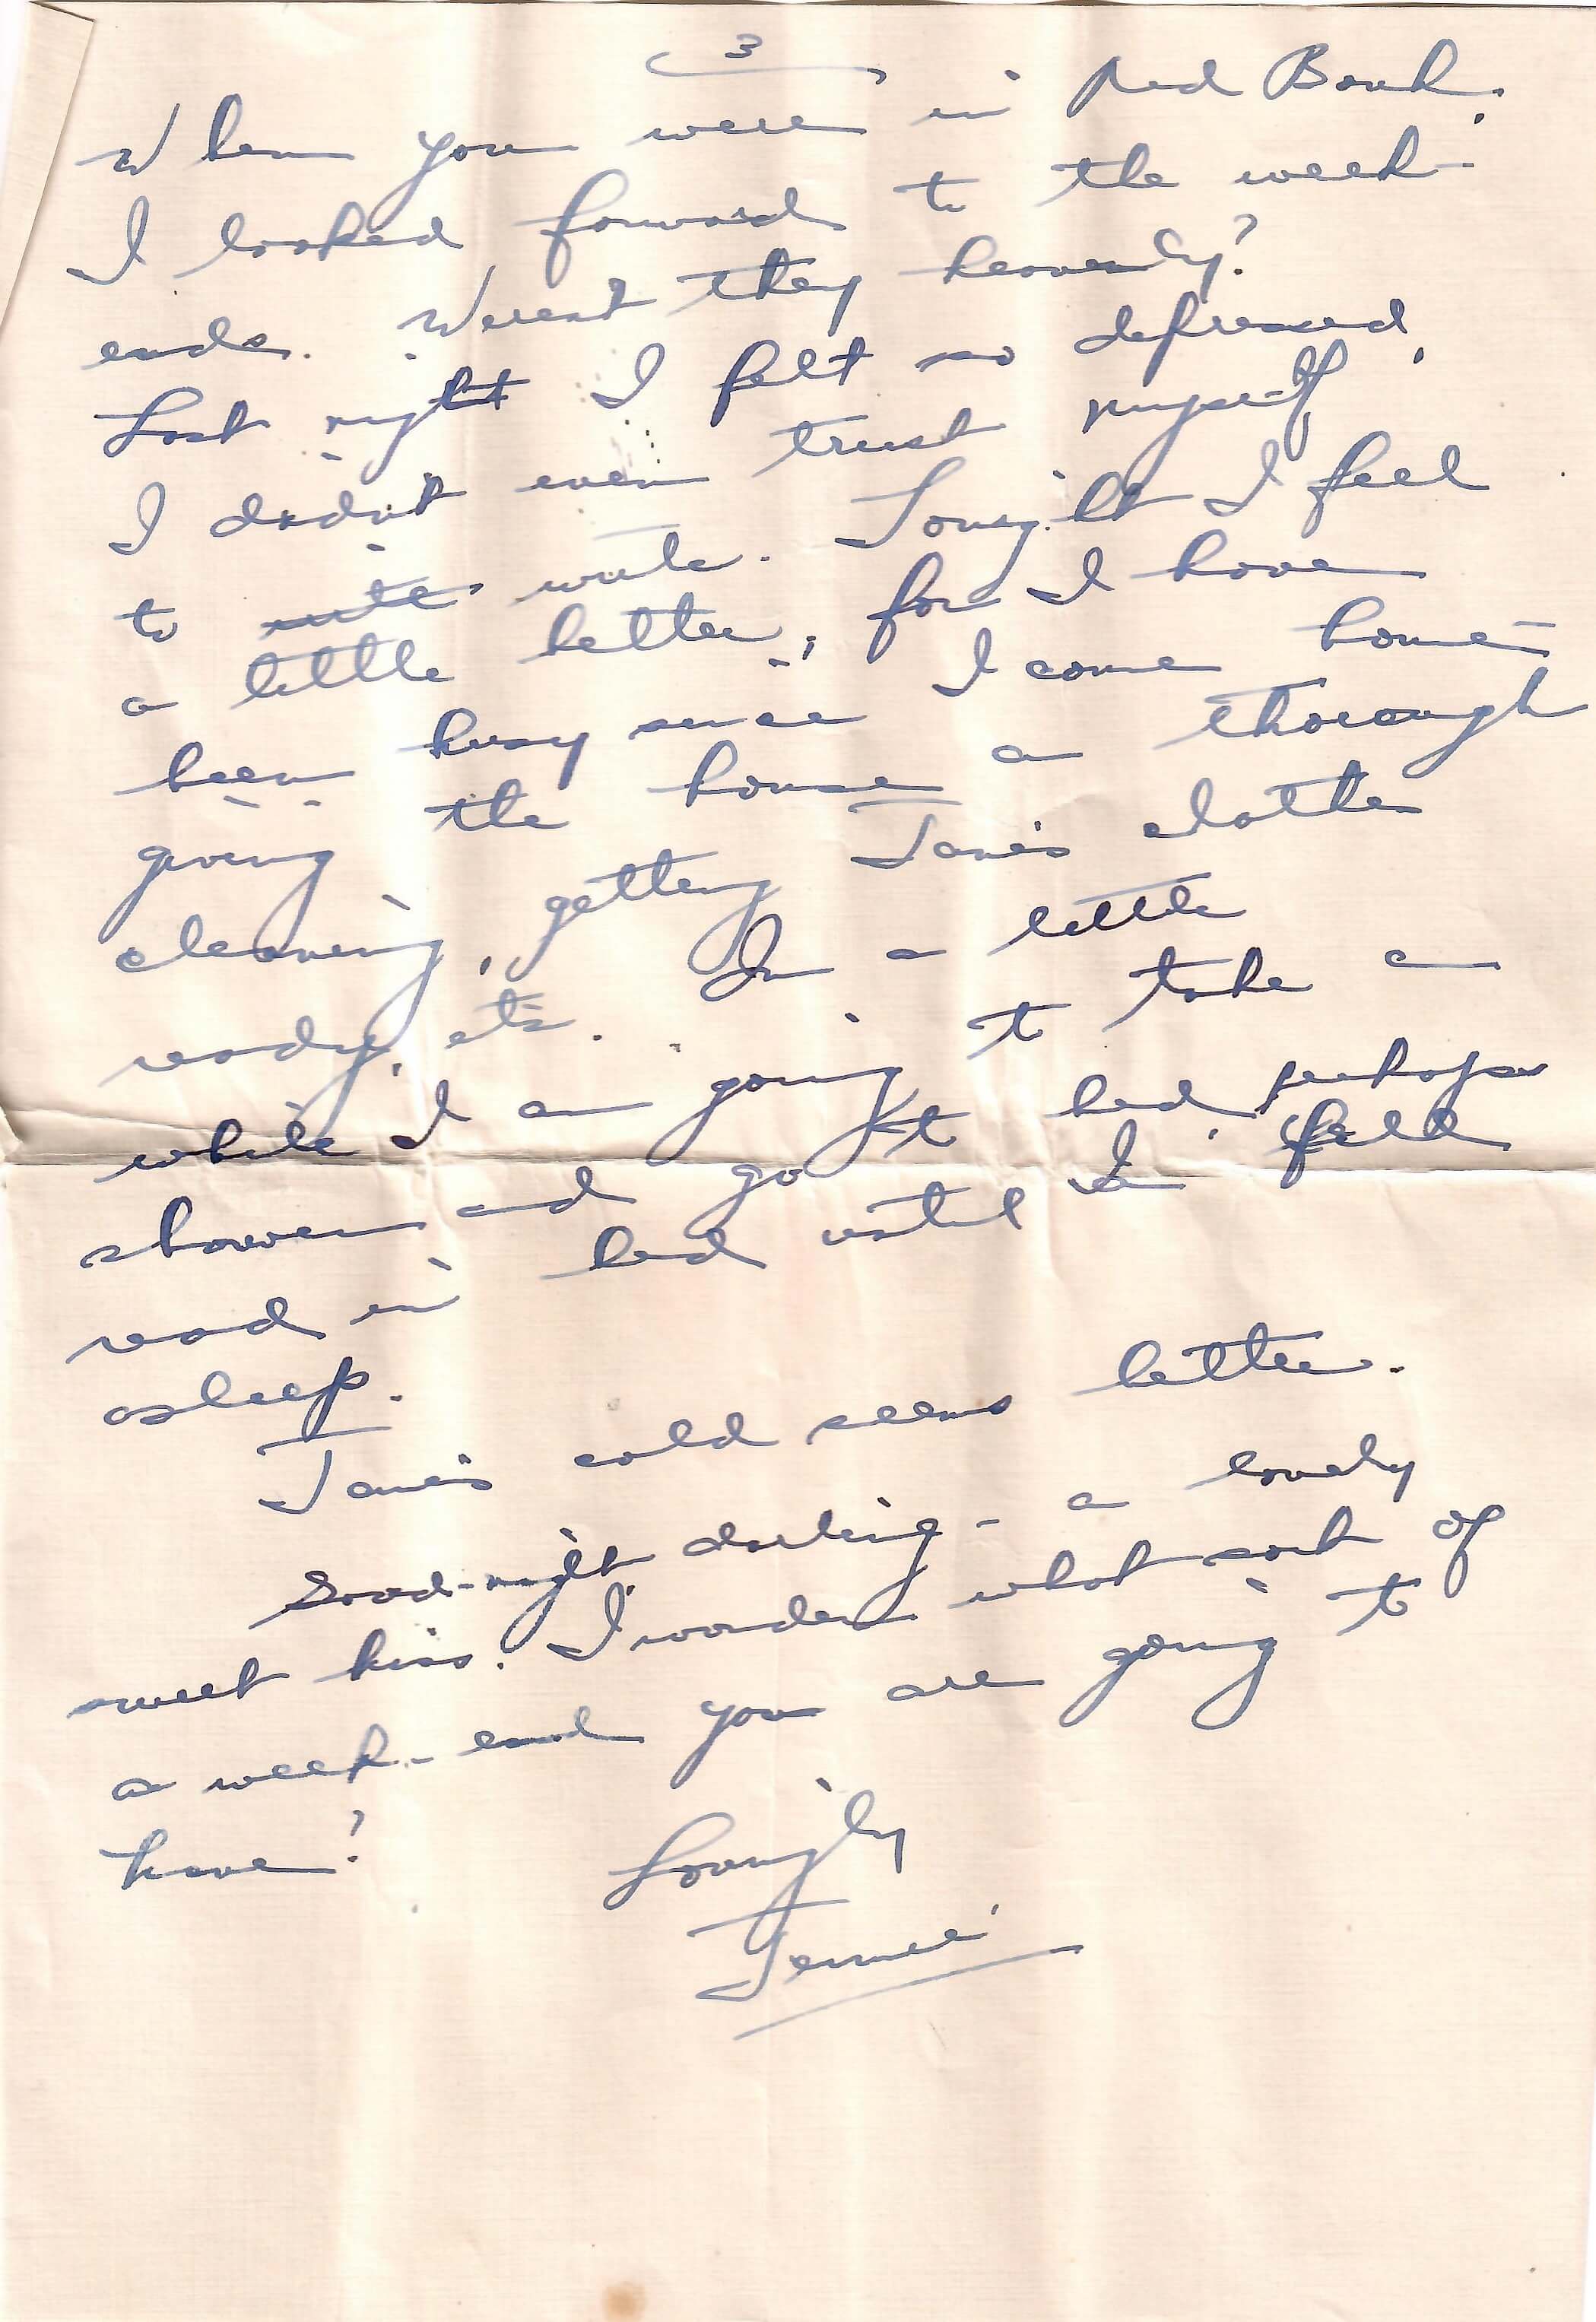 3
When you were in Red Bank,
I looked forward to the week-
ends. Weren't they heavenly?
Last night I felt so depressed,
I didn't even trust myself
to write write. Tonight I feel
a little better, for I have
been busy since I came home -
giving the house a thorough
cleaning, getting Jane's clothes
ready, etc. In a little
while I am going to take a
shower and go to bed, perhaps
read in bed until I fall
asleep.
Jane's cold seems better.
Good-night darling - a lovely
sweet kiss. I wonder what sort of
a week-end you are going to
have?
Lovingly
Jennie